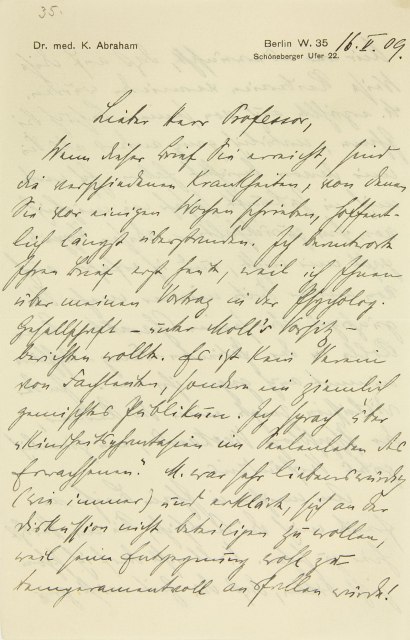 35.
Dr. med. K. Abraham
Berlin W. 35
16. V. 09.
Schöneberger Ufer 22.
Lieber Herr Professor,
Wenn dieser Brief Sie erreicht, sind
die verschiedenen Krankheiten, von denen
Sie vor einigen Wochen schrieben, hoffent-
lich längst überstanden. Ich beantworte
Ihren Brief erst heute, weil ich Ihnen
über meinen Vortrag in der Psycholog.
Gesellschaft – unter Moll's Vorsitz –
berichten wollte. Es ist kein Verein
von Fachleuten, sondern ein ziemlich
gemischtes Publikum. Ich sprach über
„Kindheitsphantasien im Seelenleben des
Erwachsenen“. M. war sehr liebenswürdig
(wie immer) und erklärte, sich an der
Diskussion nicht beteiligen zu wollen,
weil seine Entgegnung wohl zu
temperamentvoll ausfallen würde!